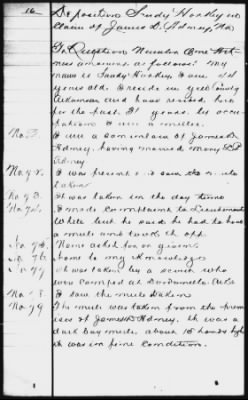 16
Deposition Handy Horkey in
claim of James D. Adney, No
To Question Number One
answered as follows: My
name is Handy Horkey, I am
years old. I reside in Yell County
Arkansas and have resided here
for the past years. My occu-
pation I am a miller.
No 2. I am a son in law of James D.
Adney, having married Mary
Adney.
No 72. I was present & saw the mule
taken
No 73. It was taken in the day time
No 74. I made complaint to Lieutenant
White but he said he had to have
a mule and took it off
No 75. None asked for or given.
No 76. None to my knowledge
No 77. It was taken by a man who
was camped at Dardanelle, Arks
No 78. I saw the mule taken
No 79. The mule was taken from the prem-
ises of James D. Adney. It was a
dark bay mule about 15 hands high
It was in fine condition.